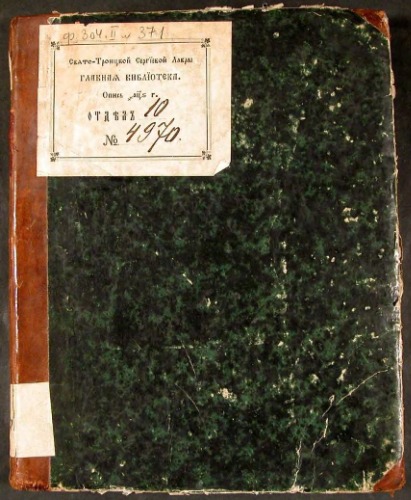 ф. 304. II № 371
Свято-Троицкой Сергіевой Лавры
ГЛАВНАЯ БИБЛІОТЕКА.
Опись г.
ОТДѢЛЪ 10
№ 4970.